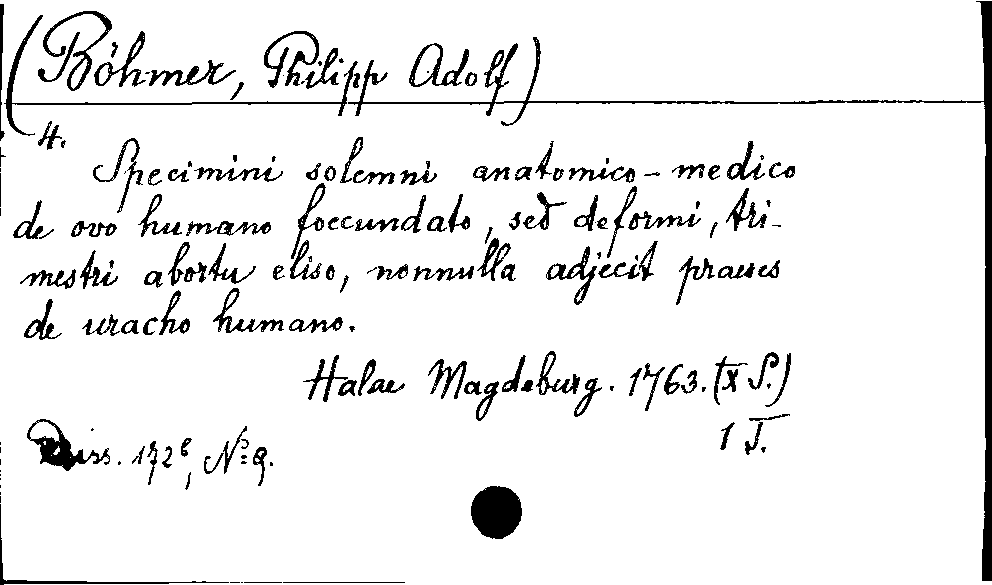 (Böhmer, Philipp Adolf)
4.
Specimini solemni anatomico-medico
de ovo humano foecundato, sed deformi, tri-
mestri abortu eliso, nonnulla adjecit praeses
de uracho humano.
Halae Magdeburg. 1763. (IX S.)
1 T.
Diss. 172⁸, N° 9.